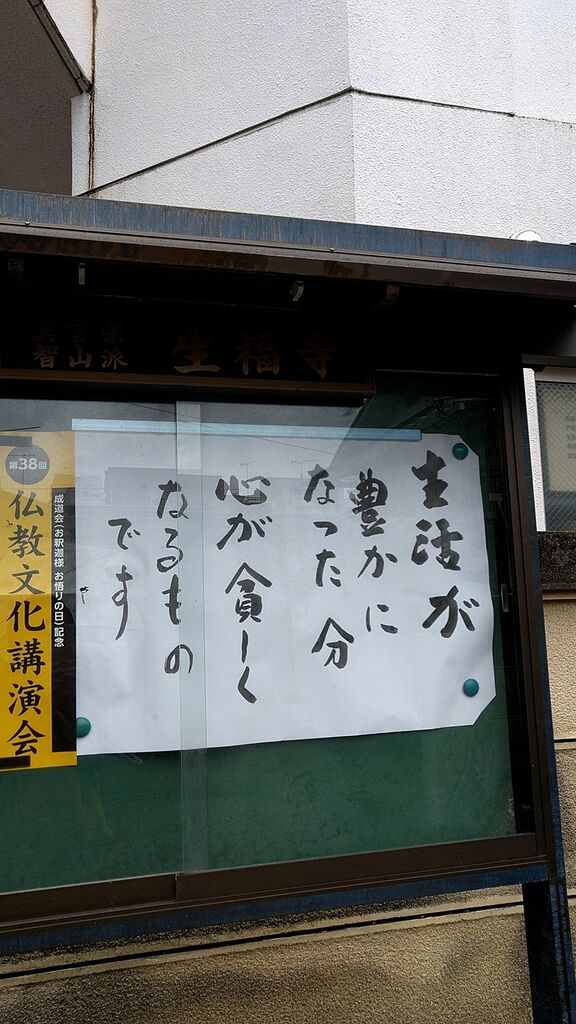 真言宗
智山派
生福寺
生活が
豊かに
なった分
心が貧しく
なるもの
です
第38回
成道会(お釈迦様 お悟りの日)記念
仏教文化講演会